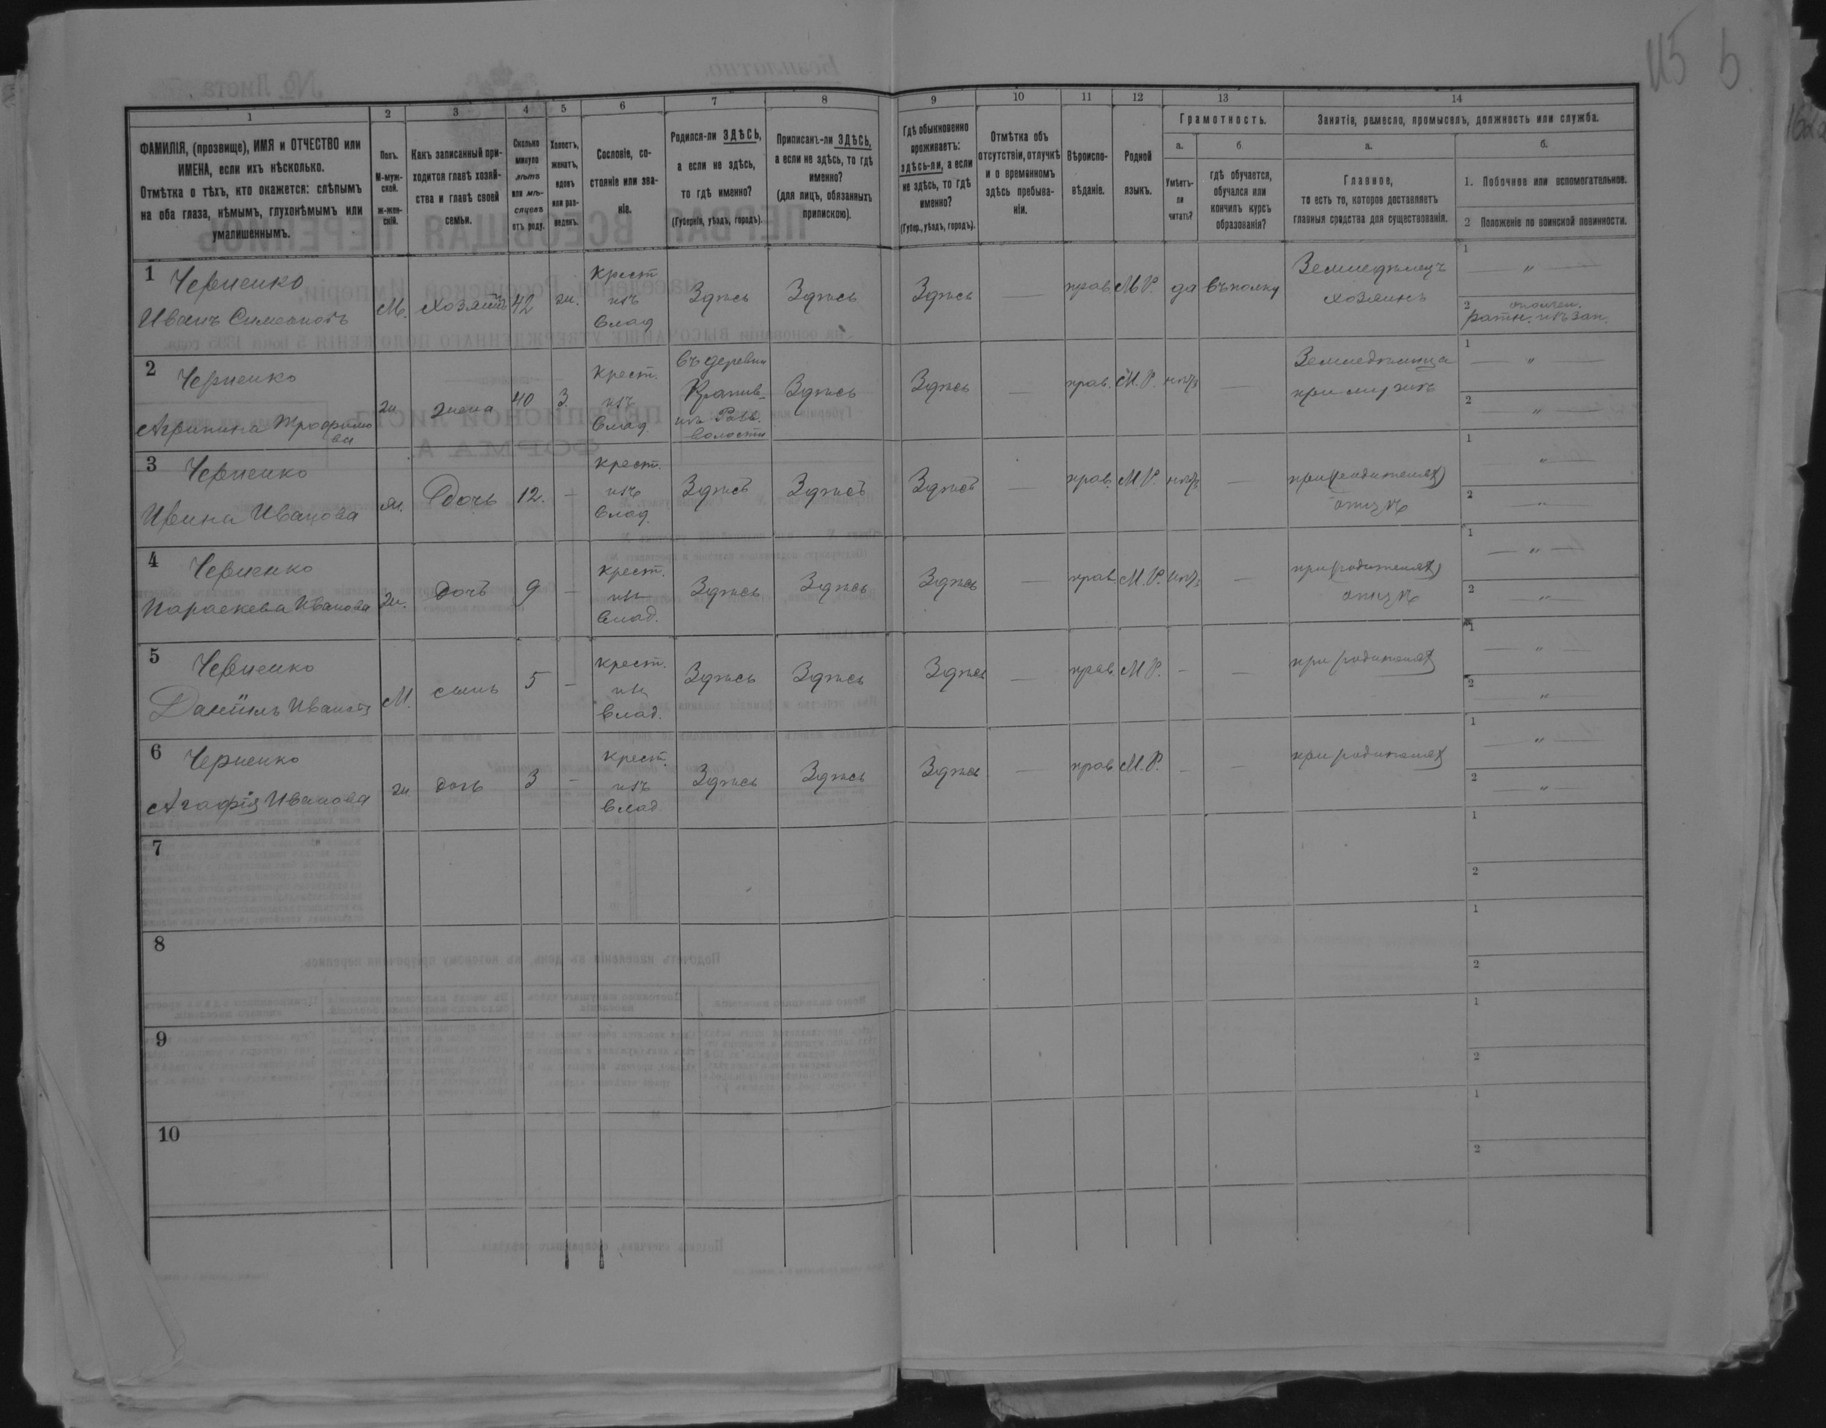 115 б
1 2 3 4 5 6 7 8 9 10 11 12 13 14
ФАМИЛІЯ, (прозвище), ИМЯ и ОТЧЕСТВО или
ИМЕНА, если ихъ нѣсколько.
Отмѣтка о тѣхъ, кто окажется: слѣпымъ
на оба глаза, нѣмымъ, глухонѣмымъ или
умалишеннымъ.
Полъ.
М-муж-
ской.
Ж-жен-
скій.
Какъ записанный при-
ходится главѣ хозяй-
ства и главѣ своей
семьи.
Сколько
минуло
лѣтъ
или мѣ-
сяцевъ
отъ роду.
Холостъ,
женатъ,
вдовъ
или раз-
веденъ.
Сословіе, со-
стояніе или зва-
ніе.
Родился-ли ЗДѢСЬ,
а если не здѣсь,
то гдѣ именно?
(Губернія, уѣздъ, городъ).
Приписанъ-ли ЗДѢСЬ,
а если не здѣсь, то гдѣ
именно?
(для лицъ, обязанныхъ
припискою).
Гдѣ обыкновенно
проживаетъ:
здѣсь-ли, а если
не здѣсь, то гдѣ
именно?
(Губер., уѣздъ, городъ).
Отмѣтка объ
отсутствіи, отлучкѣ
и о временномъ
здѣсь пребыва-
ніи.
Вѣроиспо-
вѣданіе.
Родной
языкъ.
Грамотность.
а. б
Умѣетъ-
ли
читать?
гдѣ обучается,
обучался или
кончилъ курсъ
образованія?
Занятіе, ремесло, промыселъ, должность или служба.
а. б.
Главное,
то есть то, которое доставляетъ
главныя средства для существованія.
1. Побочное или вспомогательное.
2 Положеніе по воинской повинности.
1 Черненко
Иванъ Симеоновъ
М. хозяинъ 42 ж. Крест
изъ
Влад
Здѣсь Здѣсь Здѣсь — прав. М.Р. да въ полку
Земледѣлецъ
хозяинъ
1 — „ —
2 ополчен.
ратн. изъ зап.
2 Черненко
Агрипина Трофимо
ва
ж жена 40 З. Крест.
изъ
Влад
Въ деревни
Здѣсь Здѣсь — прав. М.Р. нѣтъ —
Земледѣлица
при мужѣ
1 — „ —
2 — „ —
3 Черненко
Ирина Иванова
ж. дочь 12. — Крест.
изъ
Влад.
Здѣсь Здѣсь Здѣсь — прав. М.Р. нѣтъ —
при родителяхъ
1 — „ —
2 — „ —
4 Черненко
Параскева Иванова
ж. дочь 9 — Крест.
изъ
Влад.
Здѣсь Здѣсь Здѣсь — прав М.Р. нѣтъ —
при родителяхъ
1 — „ —
2 — „ —
5 Черненко
Даніилъ Ивановъ
М. сынъ 5 — Крест.
изъ
Влад.
Здѣсь Здѣсь Здѣсь — прав. М.Р. — —
при родителяхъ
1 — „ —
2 — „ —
6 Черненко
Агафія Иванова
ж дочь 3 — Крест.
изъ
Влад
Здѣсь Здѣсь Здѣсь — прав М.Р. — —
при родителяхъ
1 — „ —
2 — „ —
7
1
2
8
1
2
9
1
2
10
1
2